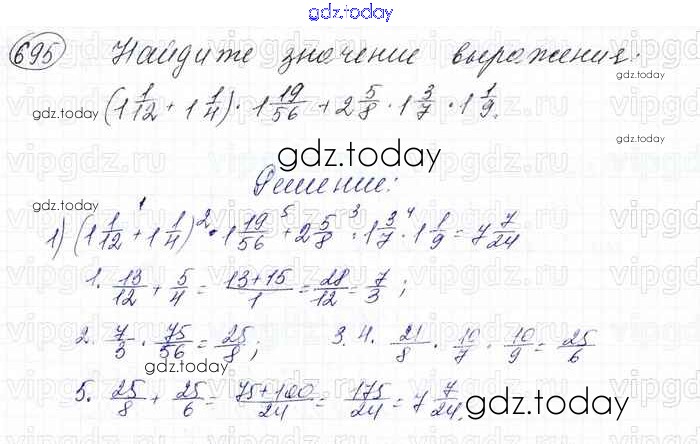 gdz.today
695 Найдите значение выражения:
gdz.today (1 1/12 + 1 1/4) · 1 19/56 + 2 5/8 · 1 3/7 · 1 1/9. gdz.today
gdz.today
Решение:
1) (1 1/12 +¹ 1 1/4) ²· 1 19/56 ⁵+ 2 5/8 ³· 1 3/7 ⁴· 1 1/9 = 7 7/24
1. 13/12 + 5/4 = 13+15/1 = 28/12 = 7/3 ;
2. 7/3 · 75/56 = 25/8 ; 3. 4. 21/8 · 10/7 · 10/9 = 25/6
5. 25/8 + 25/6 = 75+100/24 = 175/24 = 7 7/24.
gdz.today